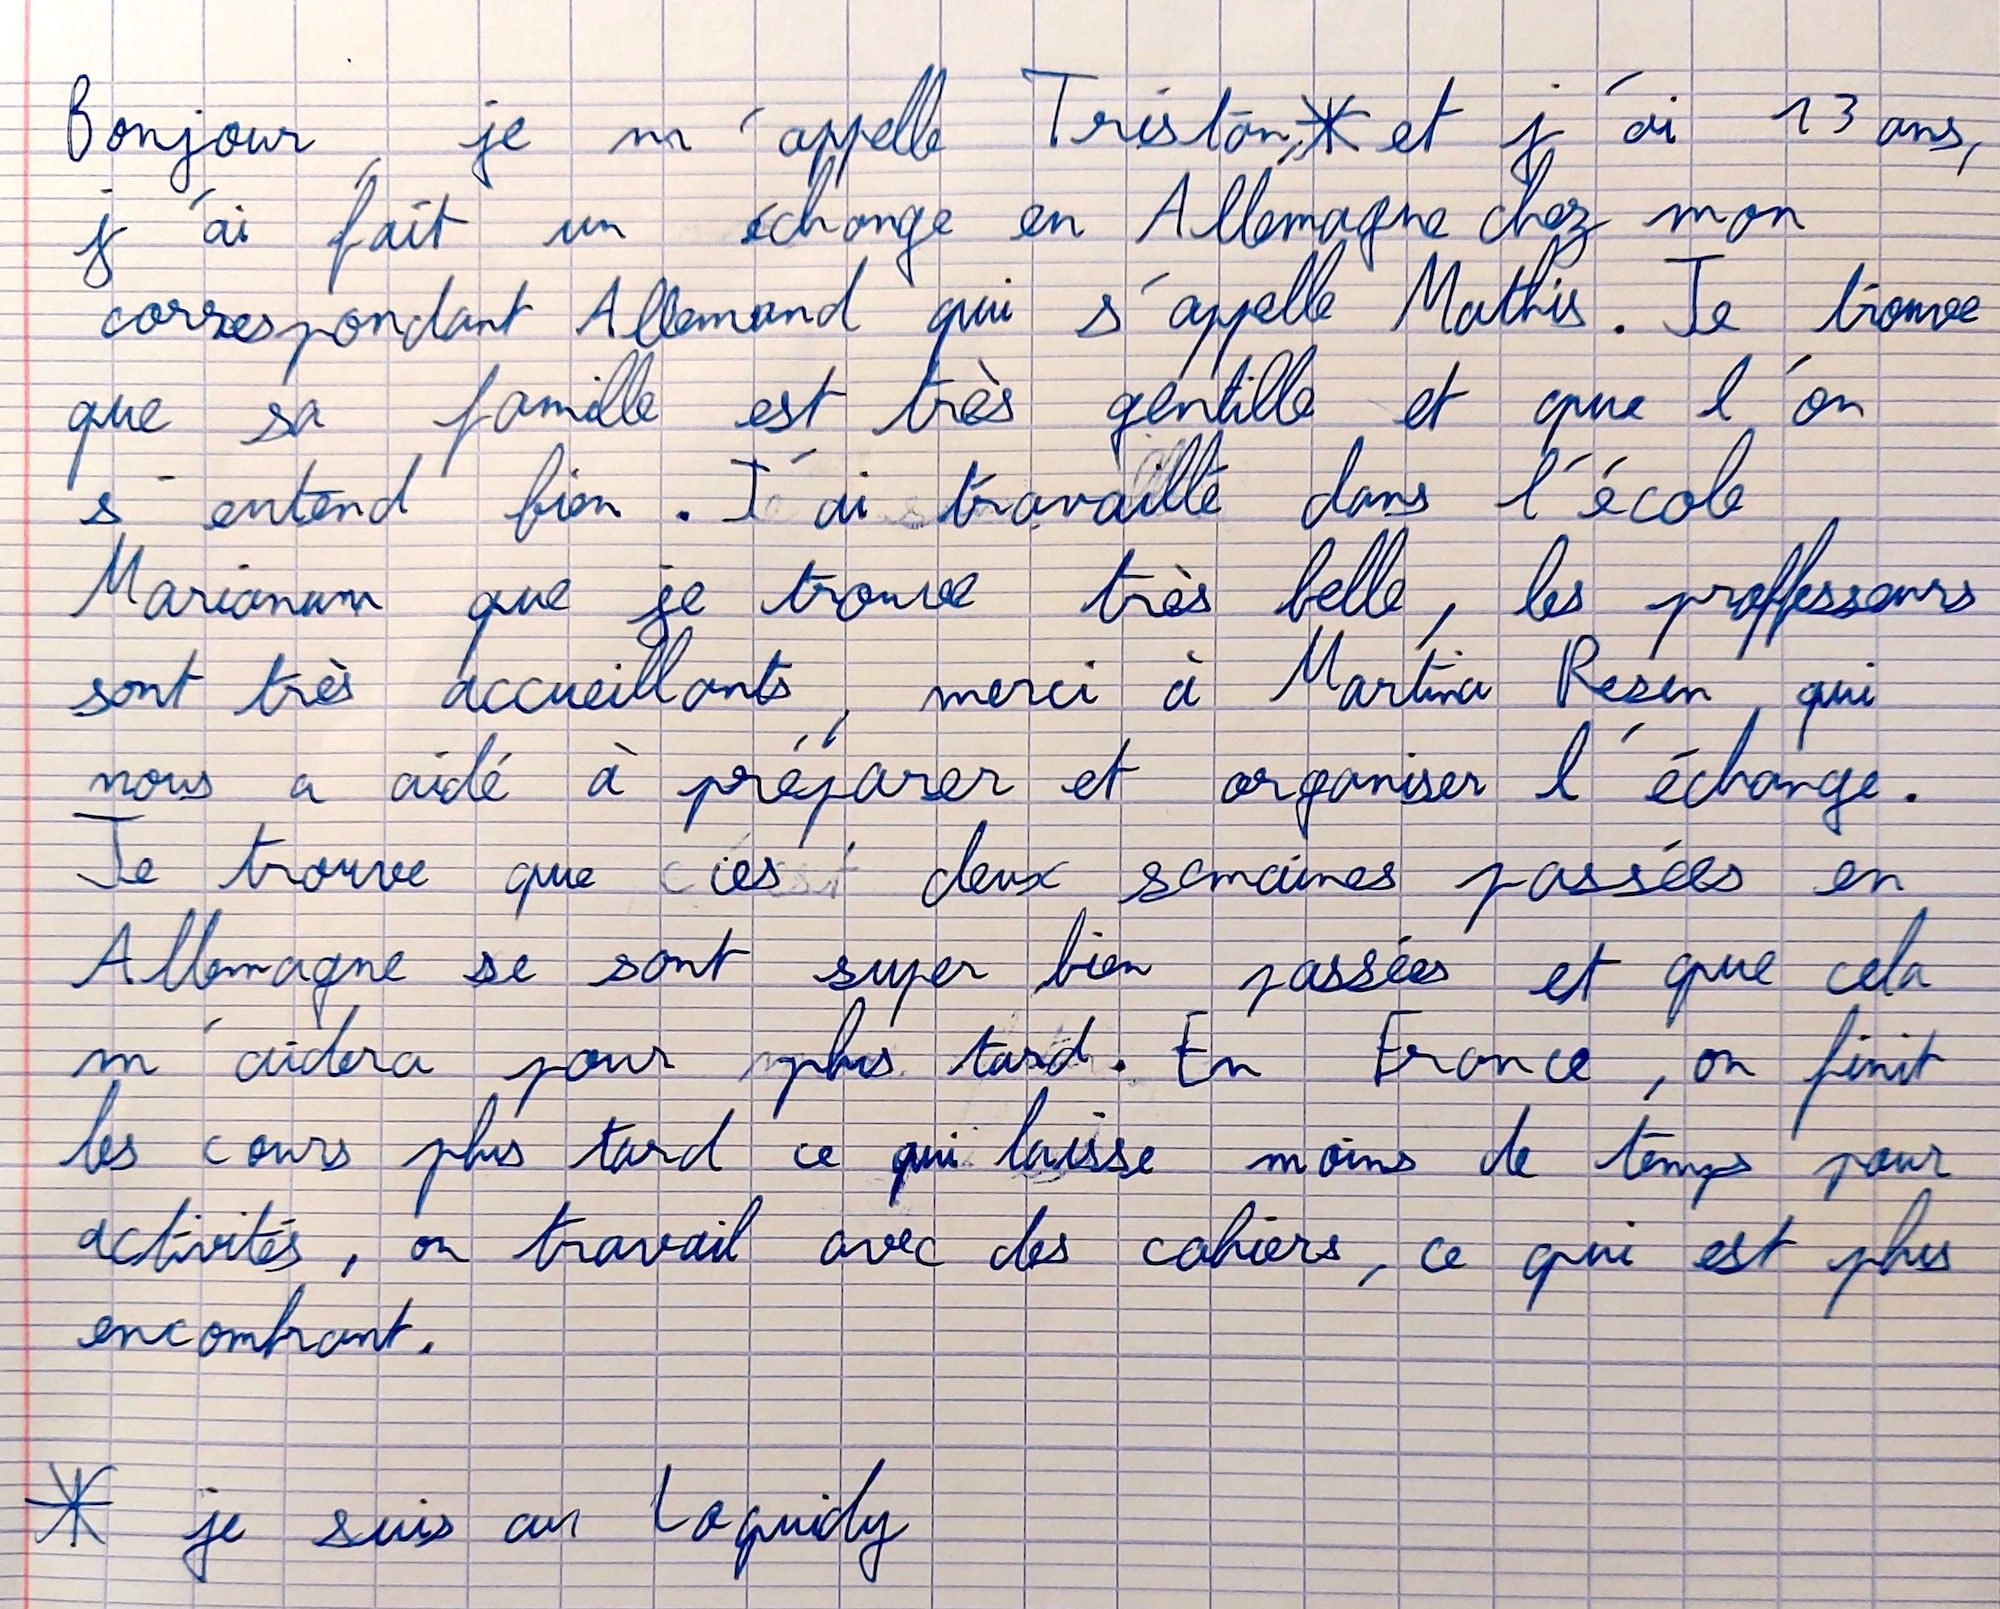 Bonjour, je m'appelle Tristan,* et j'ai 13 ans,
j'ai fait un échange en Allemagne chez mon
correspondant Allemand qui s'appelle Mathis. Je trouve
que sa famille est très gentille et que l'on
s'entend bien. J'ai travaillé dans l'école
Marianum que je trouve très belle, les proffesseurs
sont très accueillants, merci à Martina Resen qui
nous a aidé à préparer et organiser l'échange.
Je trouve que ces deux semaines passées en
Allemagne se sont super bien passées et que cela
m'aidera pour plus tard. En France, on finit
les cours plus tard ce qui laisse moins de temps pour
activités, on travail avec des cahiers, ce qui est plus
encombrant.
* je suis au Loquidy